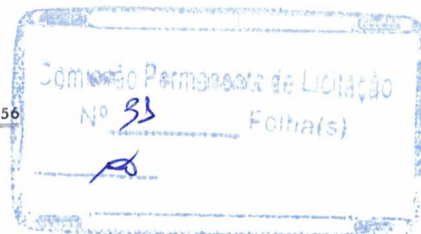 Comissão Permanente de Licitação
56
Nº 33 Folha(s)